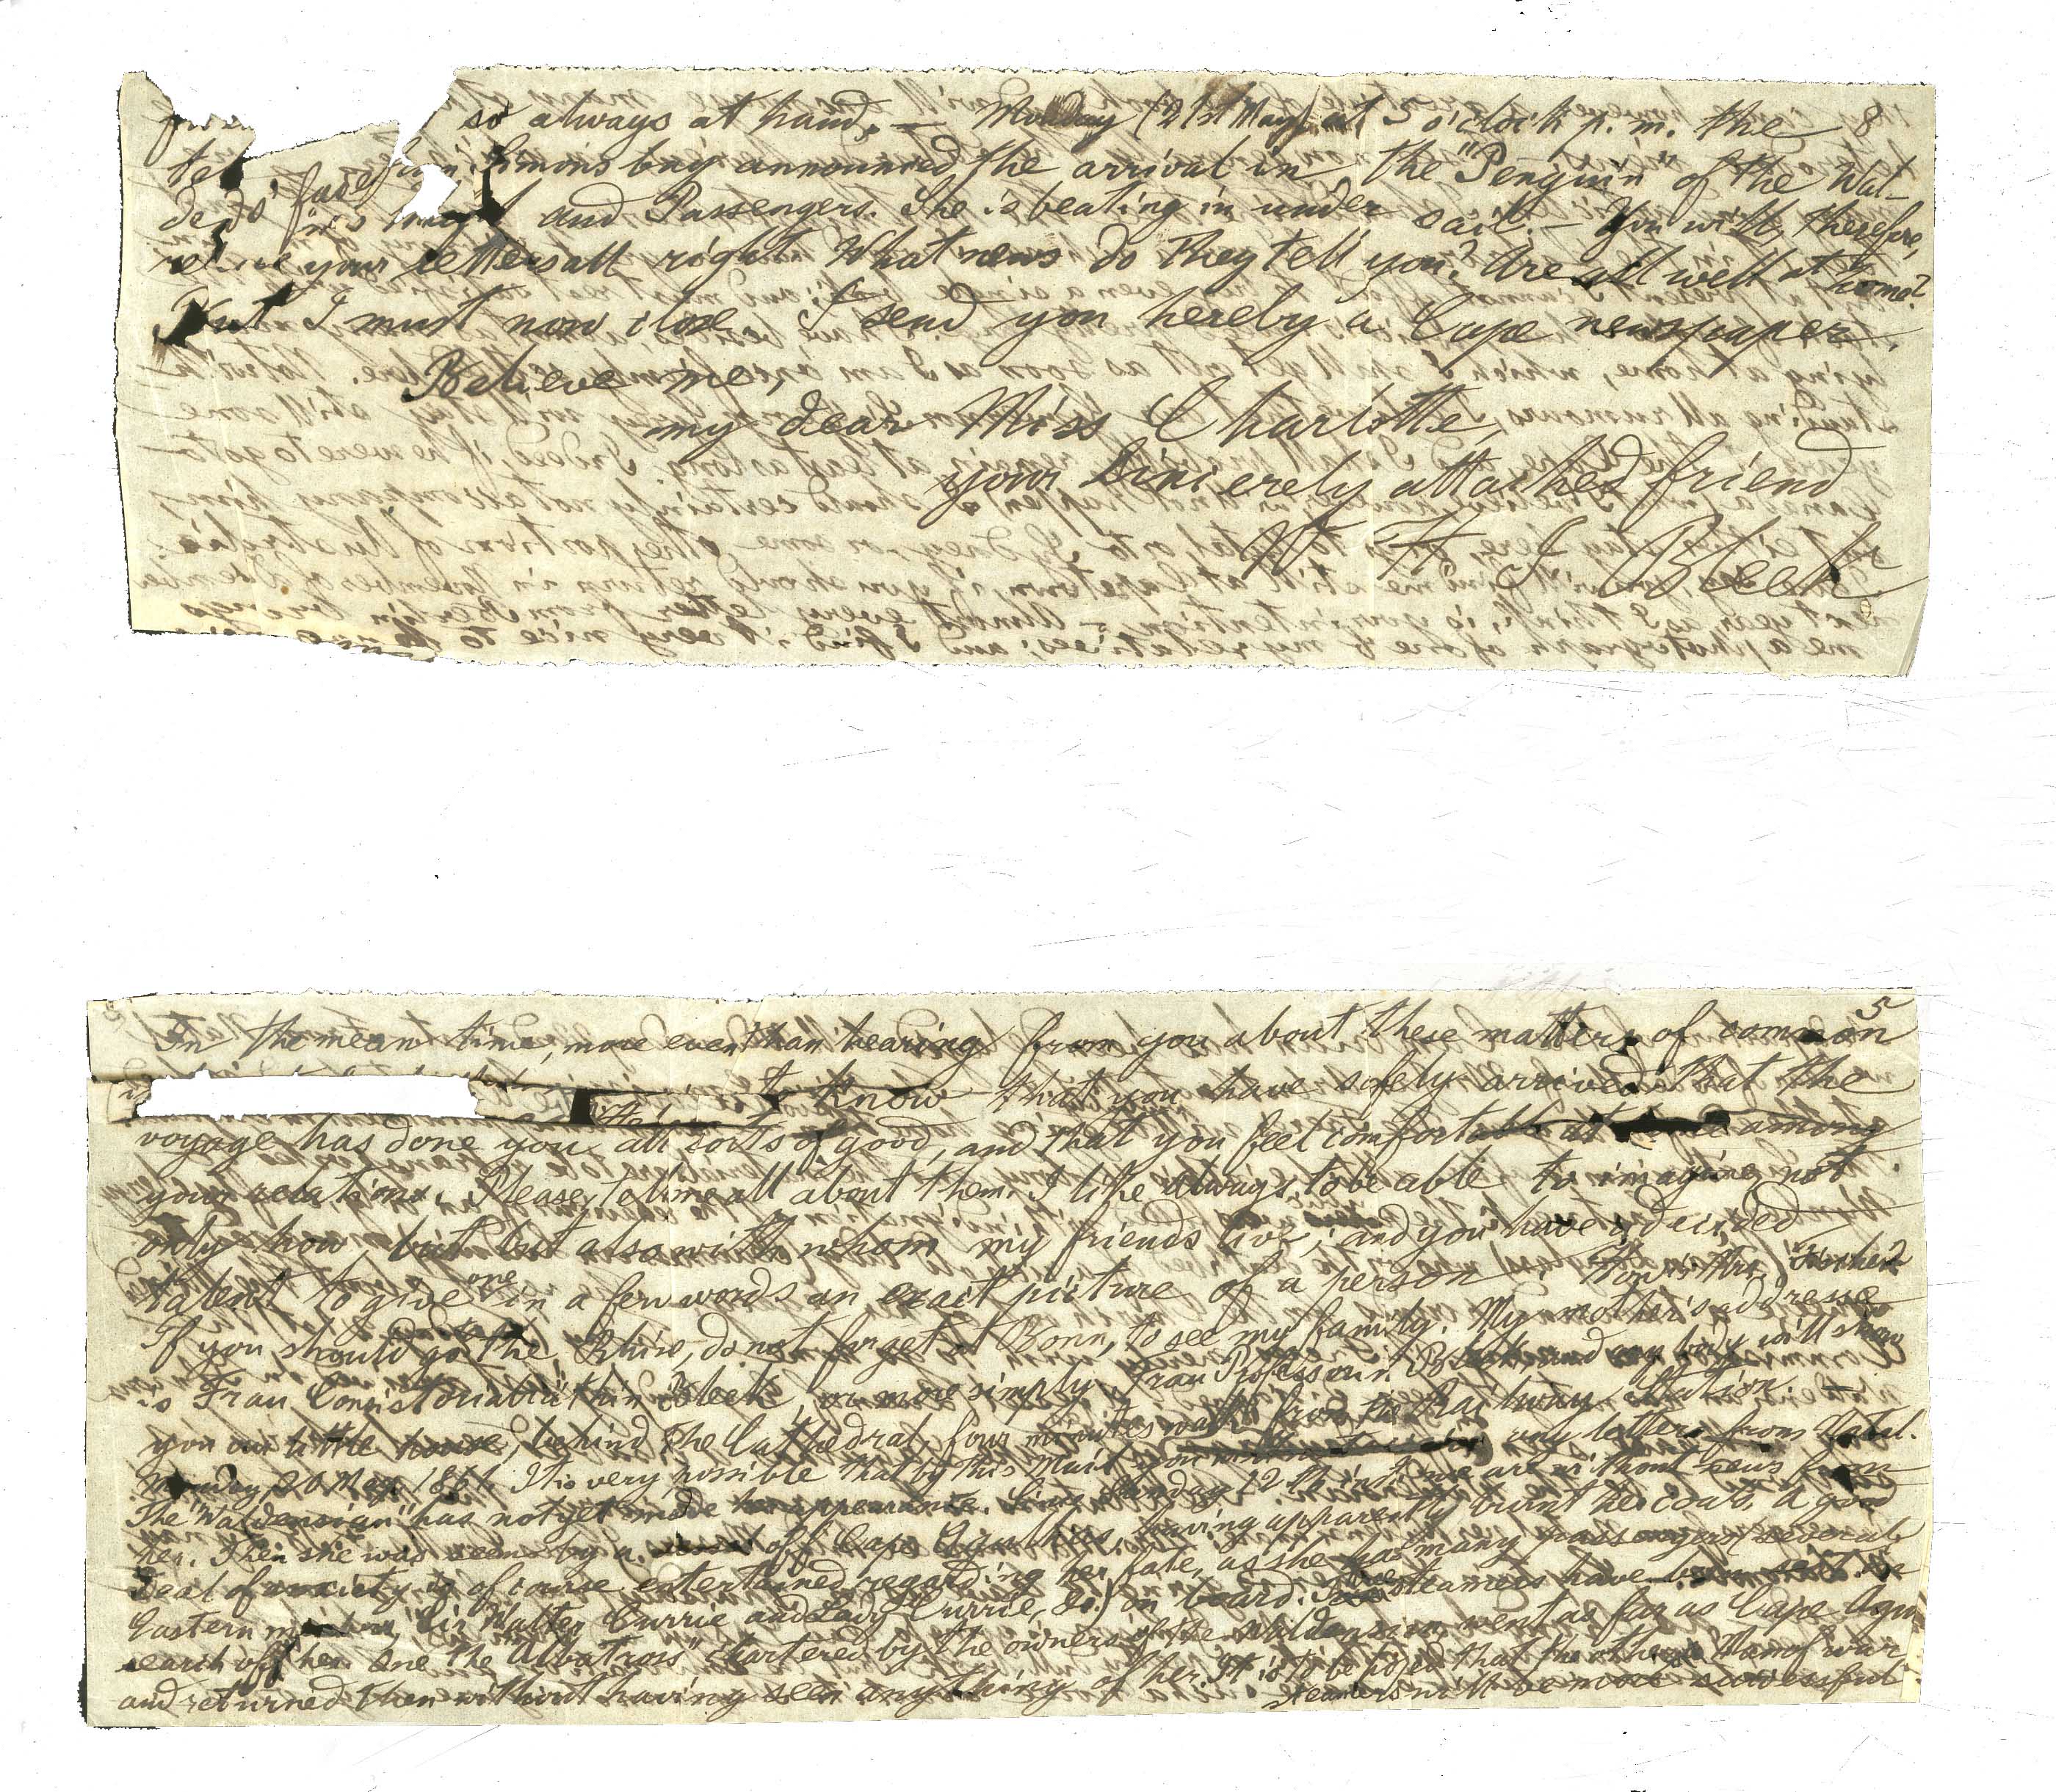 8
so always at hand. — Monday (21st May) at 5 o'clock p.m. the
from Simons bay announced the arrival in the "Penguin" of the Wal-
den and Passengers. She is beating in under sail. — You will, therefore,
receive your letters all right. What news do they tell you? Are all well at home?
But I must now close. I send you hereby a Cape newspaper.
Believe me,
my dear Miss Charlotte,
your sincerely attached friend
W. H. J. Bleek
5
In the mean time, more even than hearing from you about these matters of common
to know that you have safely arrived, that the
voyage has done you all sorts of good, and that you feel comfortable at among
your relations. Please, tell me all about them. I like always to be able to imagine not
only how, but also with whom my friends live; and you have a decided
talent to give one in a few words an exact picture of a person. How is Mrs.
If you should go to the Rhine, do not forget at Bonn, to see my family. My mother's addresse
is Frau Consistorialräthin Bleek, or more simply Frau Professorin Bleek, and any body will show
you our little house, behind the Cathedral, four minutes walk from the Railway Station. —
Monday 20 May 1861. It is very possible that by this Mail you any letters from Natal.
The "Waldensian" has not yet made her appearance. Since Sunday 12th inst. we are without news from
her. Then she was seen by a off Cape Agulhas, having apparently burnt her coals. A good
deal of anxiety is of course entertained regarding her fate, as she has many passengers (several
Eastern members, Sir Walter Currie and Lady Currie, &c.) on board. steamers have been sent in
search of her. One the "Albatross" chartered by the owners of the Waldensian went as far as Cape Agu
and returned then without having seen anything of her. It is to be hoped that the other Man of war
steamers will be more successful